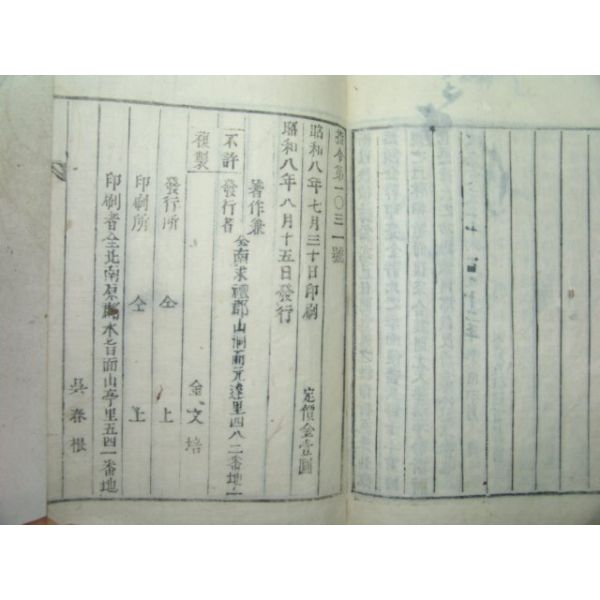 指令第一〇三一號
昭和八年七月三十日印刷 定價金壹圓
昭和八年八月十五日發行
著作兼
發行者 仝南求禮郡山洞面元達里四八二番地
金文培
不許
複製
發行所 仝 上
印刷所 仝 上
印刷者 仝北南原郡水旨面山亭里五四一番地
吳春根